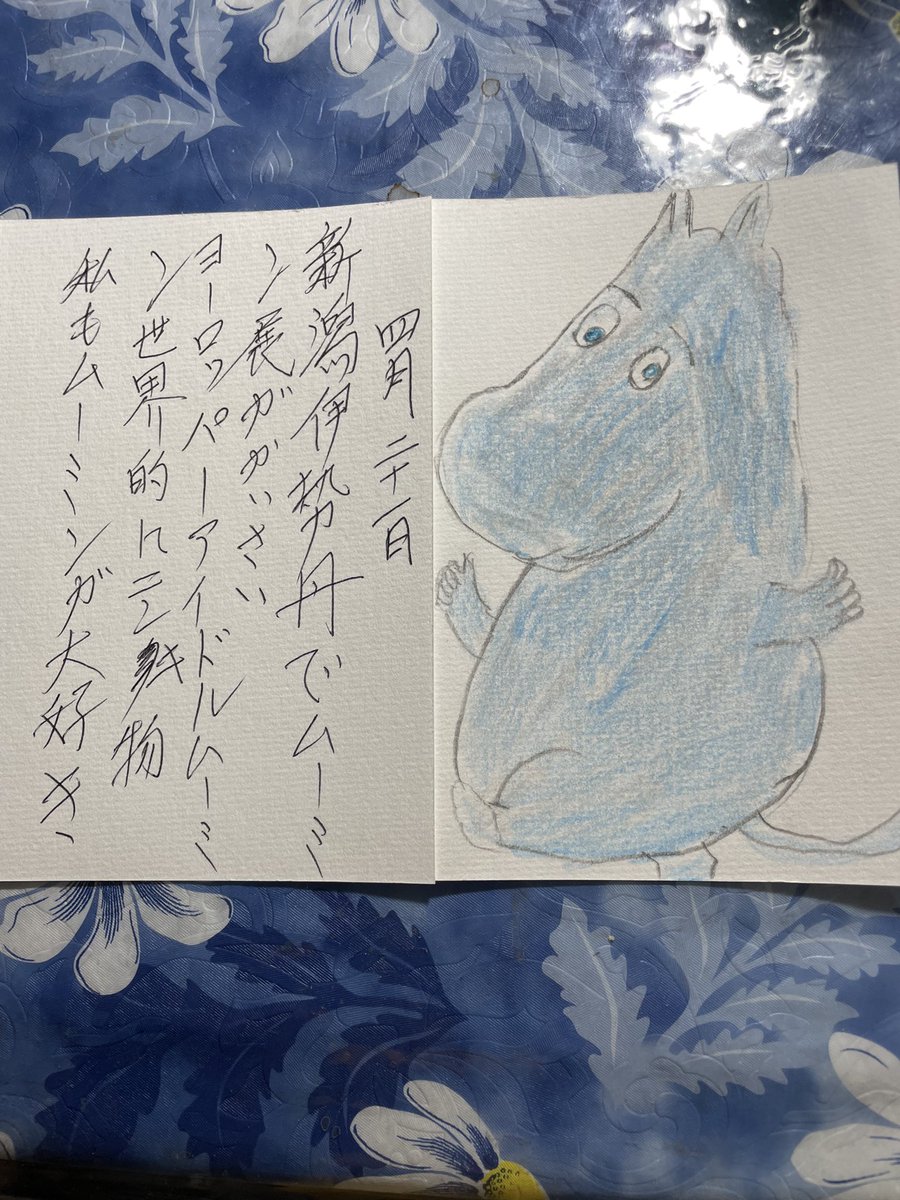 四月二十一日
新潟伊勢丹でムーミ
ン展がかいさい
ヨーロッパーアイドルムーミ
ン世界的に
物
私もムーミンが大好き